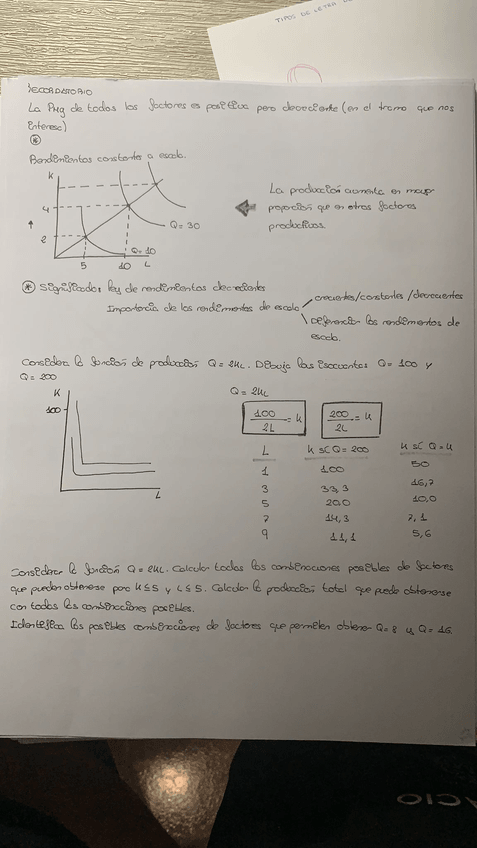 TIPOS DE LETRA
RECORDATORIO
La PMg de todos los factores es positiva pero decreciente (en el tramo que nos
interesa)
*
Rendimientos constantes a escala.
K
4
2
Q = 30
Q = 10
5 10 L
La producción aumenta en mayor
proporción que en otros factores
productivos.
* Significados ley de rendimientos decrecientes
Importancia de los rendimientos de escala
crecientes/constantes/decrecientes
Diferenciar los rendimientos de
escala.
Considera la función de producción Q = 2KL. Dibuja las isocuantas Q = 100 y
Q = 200
K
100
L
Q = 2KL
100/2L = K 200/2L = K
L K si Q = 200 K si Q = 
1 100 50
3 33,3 16,7
5 20,0 10,0
7 14,3 7,1
9 11,1 5,6
Considerar la función Q = 2KL. Calcular todas las combinaciones posibles de factores
que pueden obtenerse para K ≤ 5 y L ≤ 5. Calcular la producción total que puede obtenerse
con todas las combinaciones posibles.
Identifica las posibles combinaciones de factores que permiten obtener Q = 8 y Q = 16.
ACIO